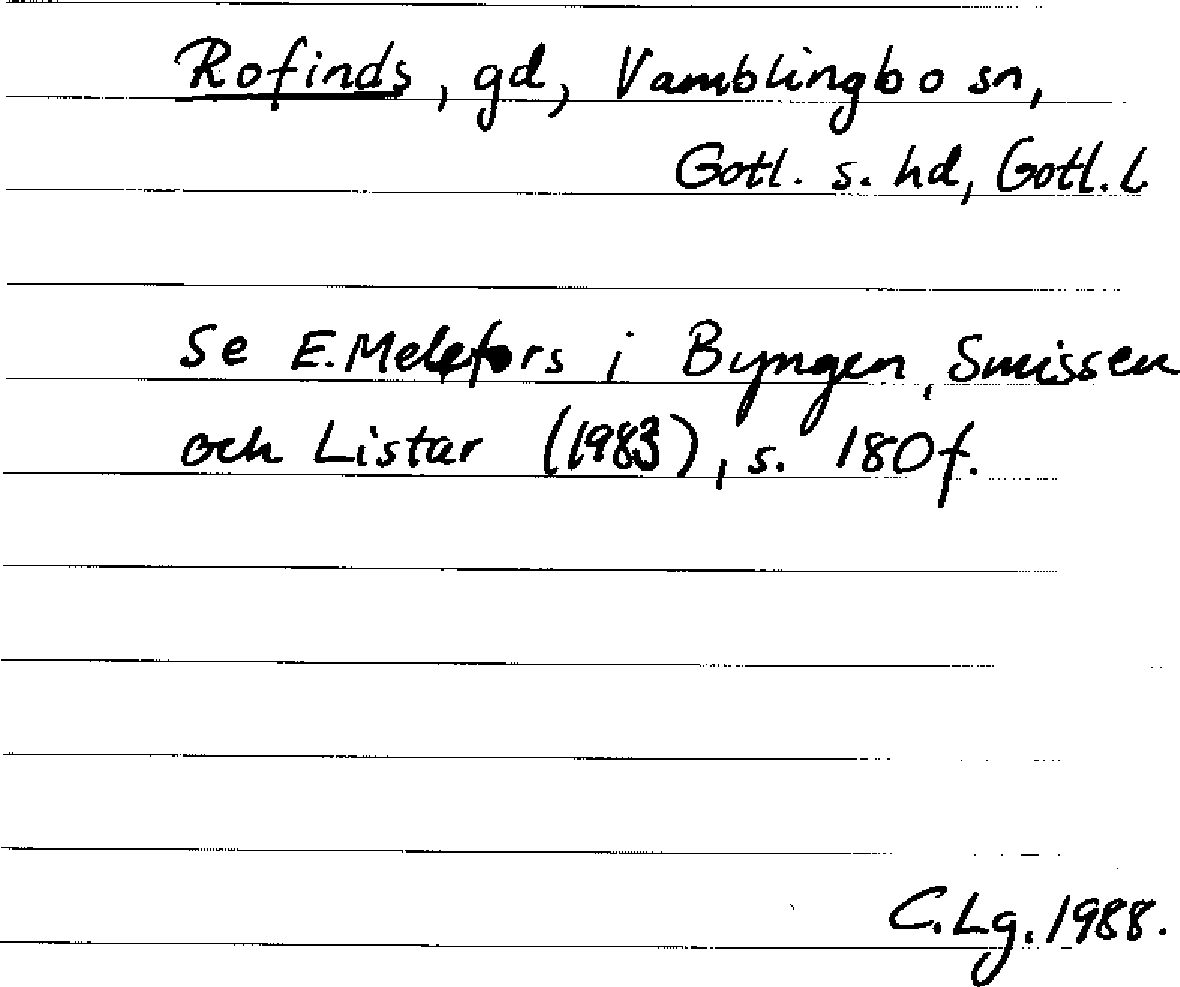 Rofinds, gd, Vamblingbo sn,
Gotl. s. hd, Gotl. l.
Se E. Melefors i Byngen, Smissen
och Listar (1983), s. 180 f.
C. Lg. 1988.